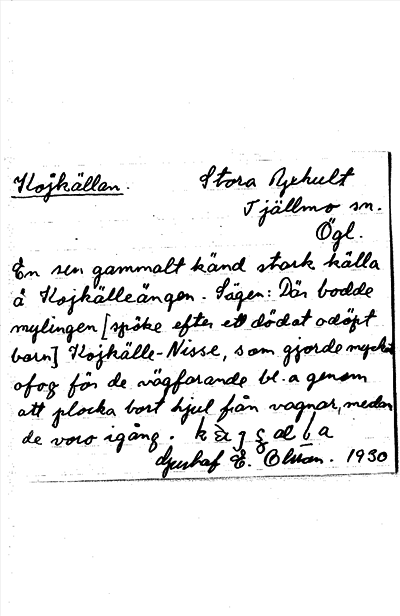 Kojkällan. Stora Byhult
Tjällmo sn.
Ögl.
En sen gammalt känd stark källa
å Kojkälleängen. Sägen: Där bodde
mylingen [spöke efter ett dödat odöpt
barn] Kojkälle-Nisse, som gjorde mycket
ofog för de vägfarande bl.a genom
att plocka bort hjul från vagnar, medan
de voro igång.
Gustaf E. Olsson. 1930